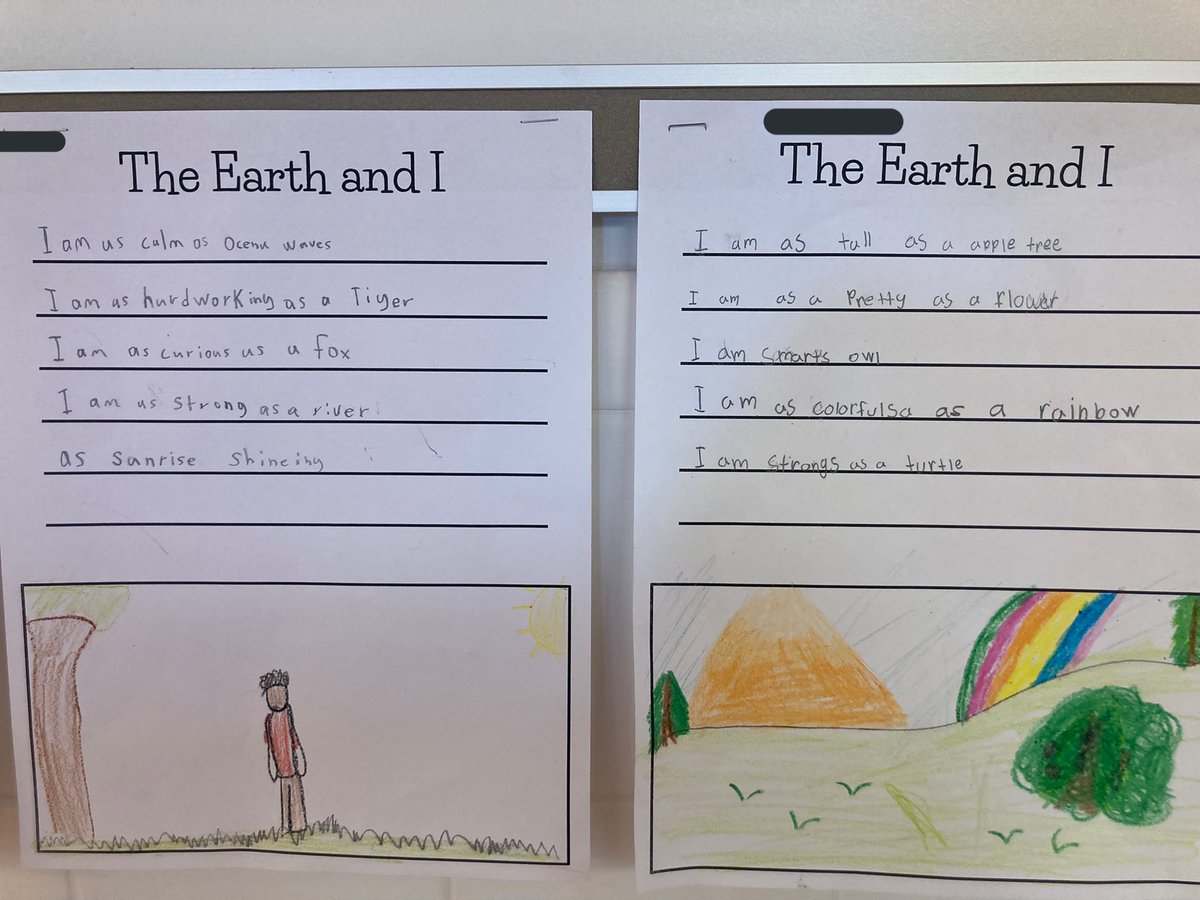 The Earth and I
I am us calm as Ocenu waves
I am us hurdworking as a Tiger
I am as curious us a fox
I am us strong as a river
as sunrise shineing
The Earth and I
I am as tall as a apple tree
I am as a Pretty as a flower
I am smarts owl
I am as colorfulsa as a rainbow
I am strongs as a turtle